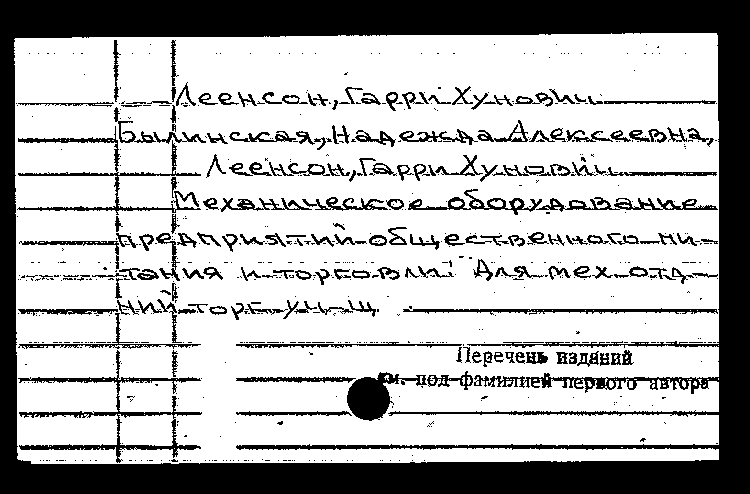 Леенсон, Гарри Хунович
Былинская, Надежда Алексеевна,
Леенсон, Гарри Хунович
Механическое оборудование
предприятий общественного пи-
тания и торговли: Для мех. отд-
ний торг. уч-щ
Перечень изданий
см. под фамилией первого автора